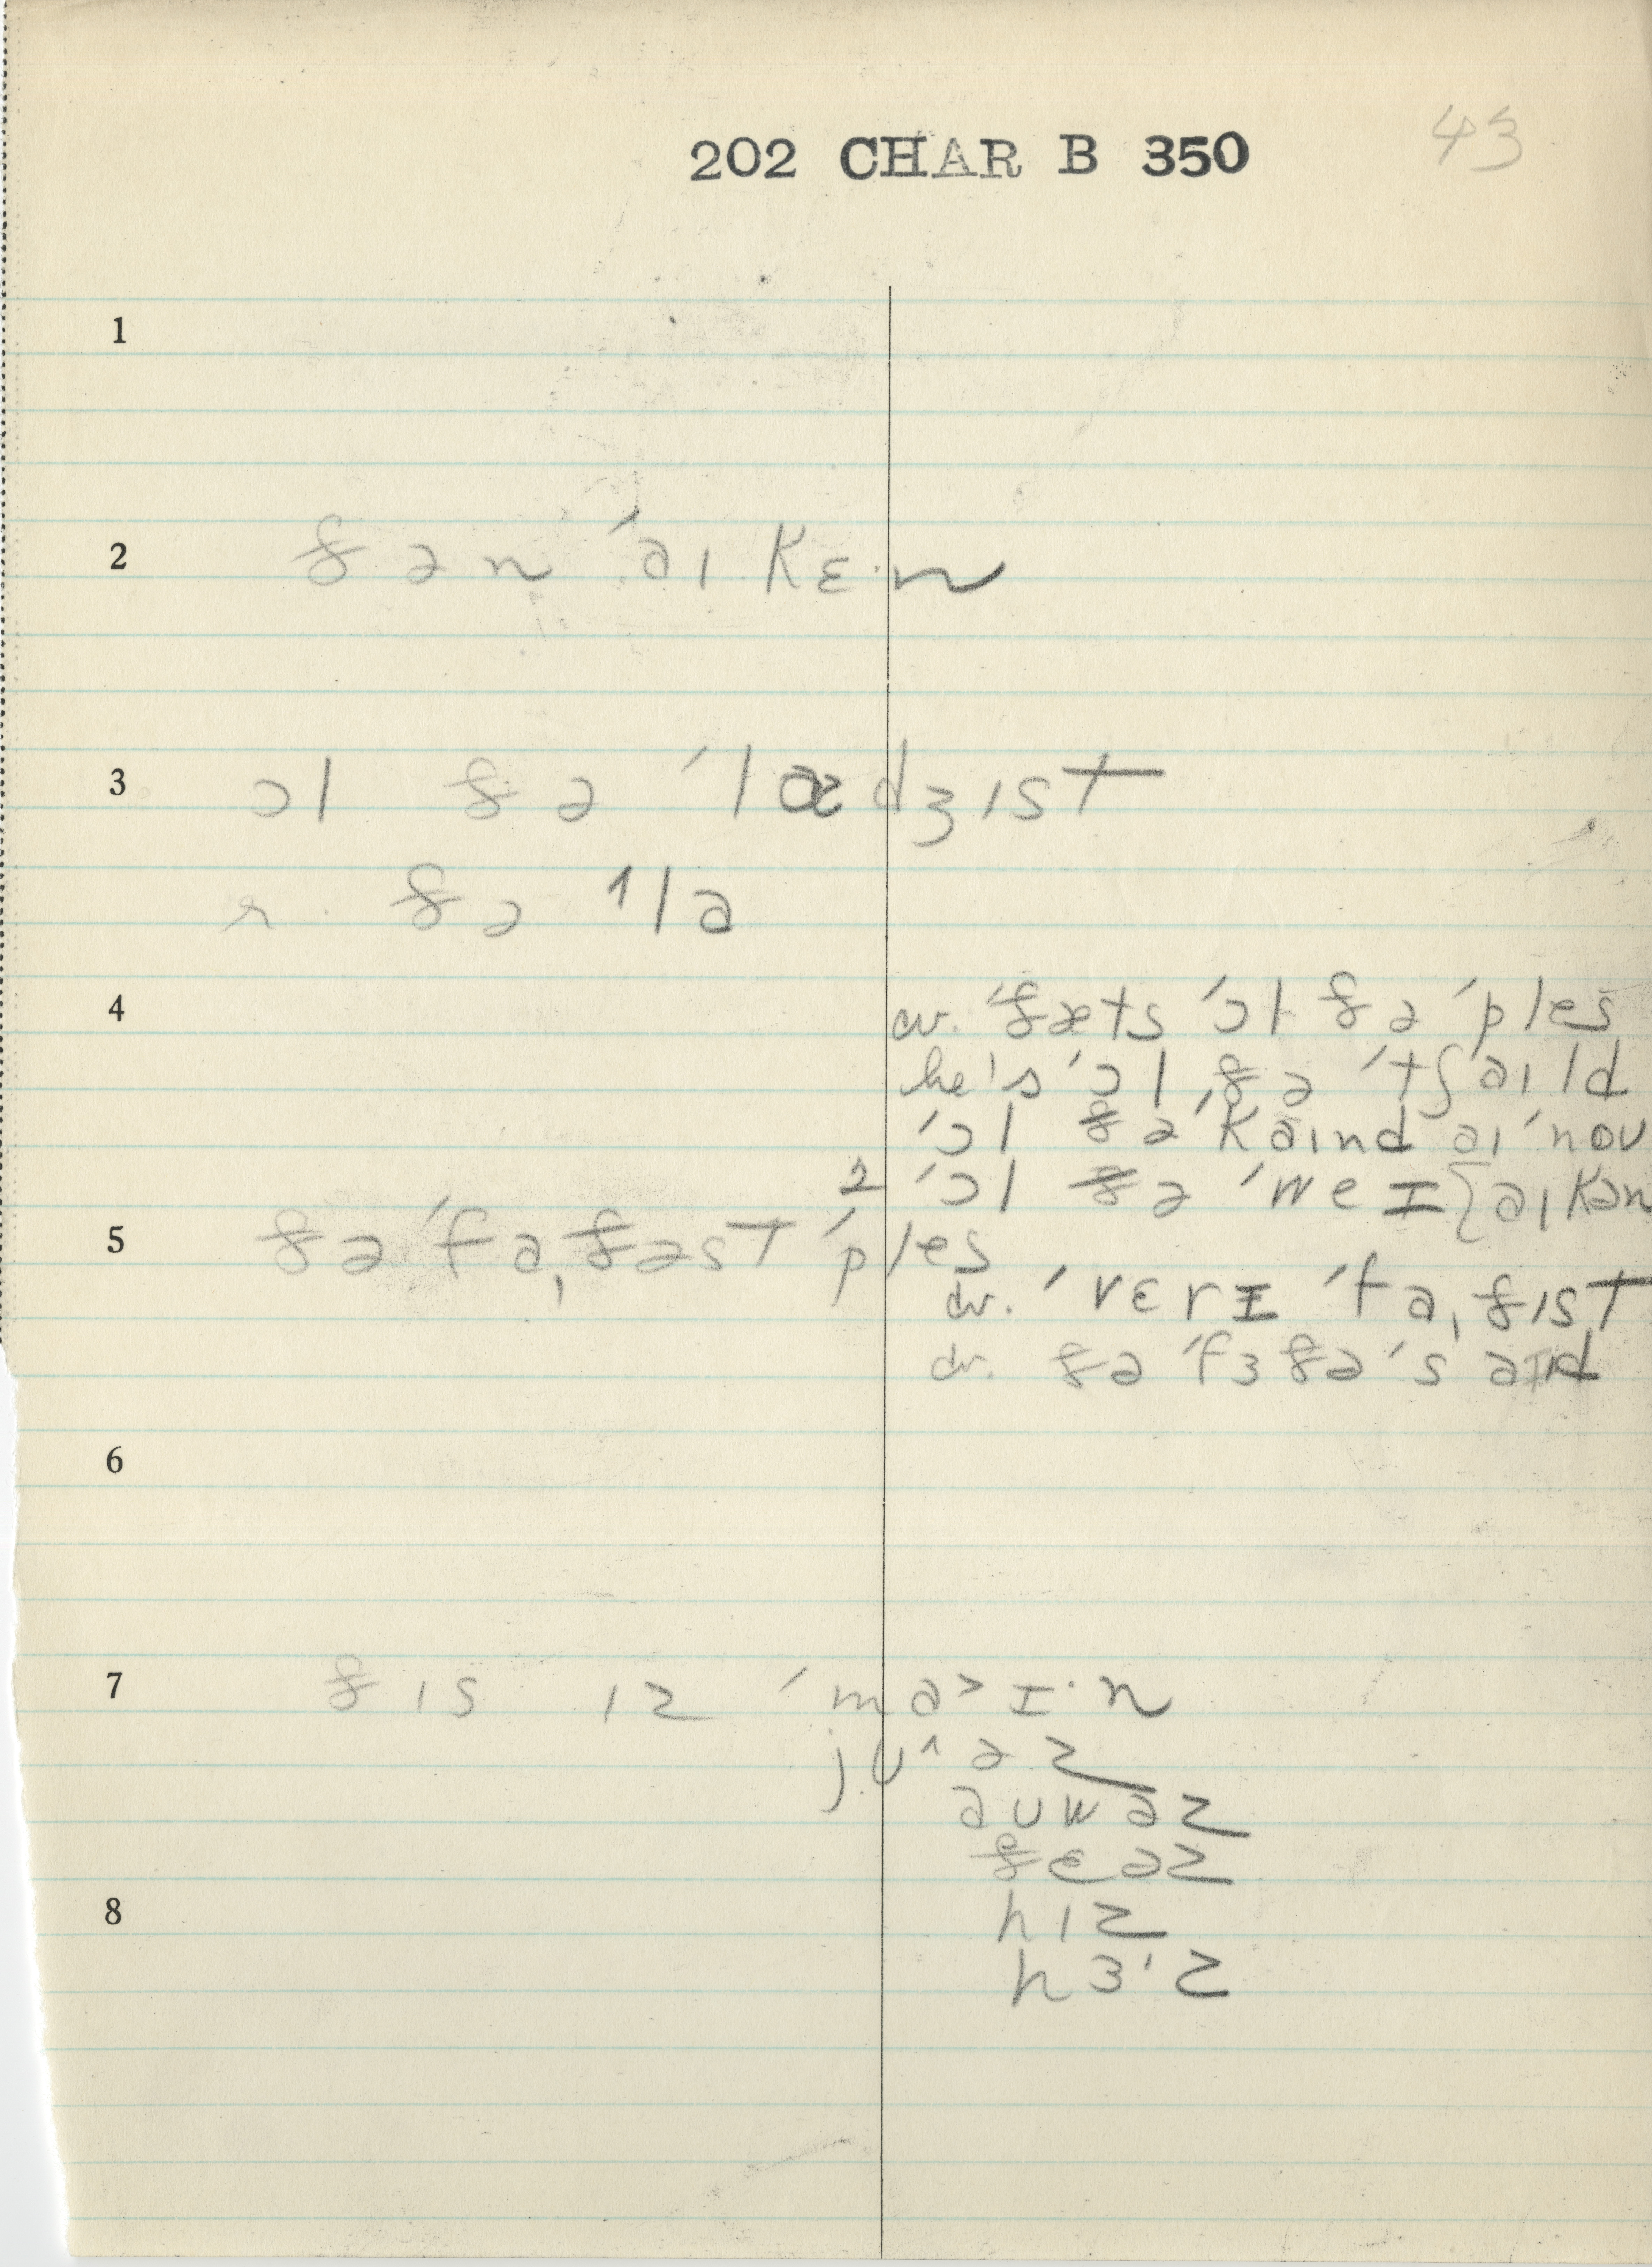 43
202 CHAR B 350
1
2 ðən ˈaɪ kɛ·n
3 ɔl ðə ˈlædʒɪst
r. ðə ˈla
4 cv. ˈðæts ˈɔl ðə ˈples
he's ˈɔl ðə ˈtʃaɪld
ˈɔl ðə ˈkaɪnd aɪ ˈnoʊ
2 ˈɔl ðə ˈweɪ} aɪ kən
5 ðə ˈfaˌðəst ˈples
cv. ˈvɛrɪ ˈfaˌðɪst
cv. ðə ˈfɜðə ˈsaɪd
6
7 ðɪs ɪz ˈma˃ɪ·n
jʊ^əz
aʊwəz
ðɛəz
8 hɪz
hɜ·z